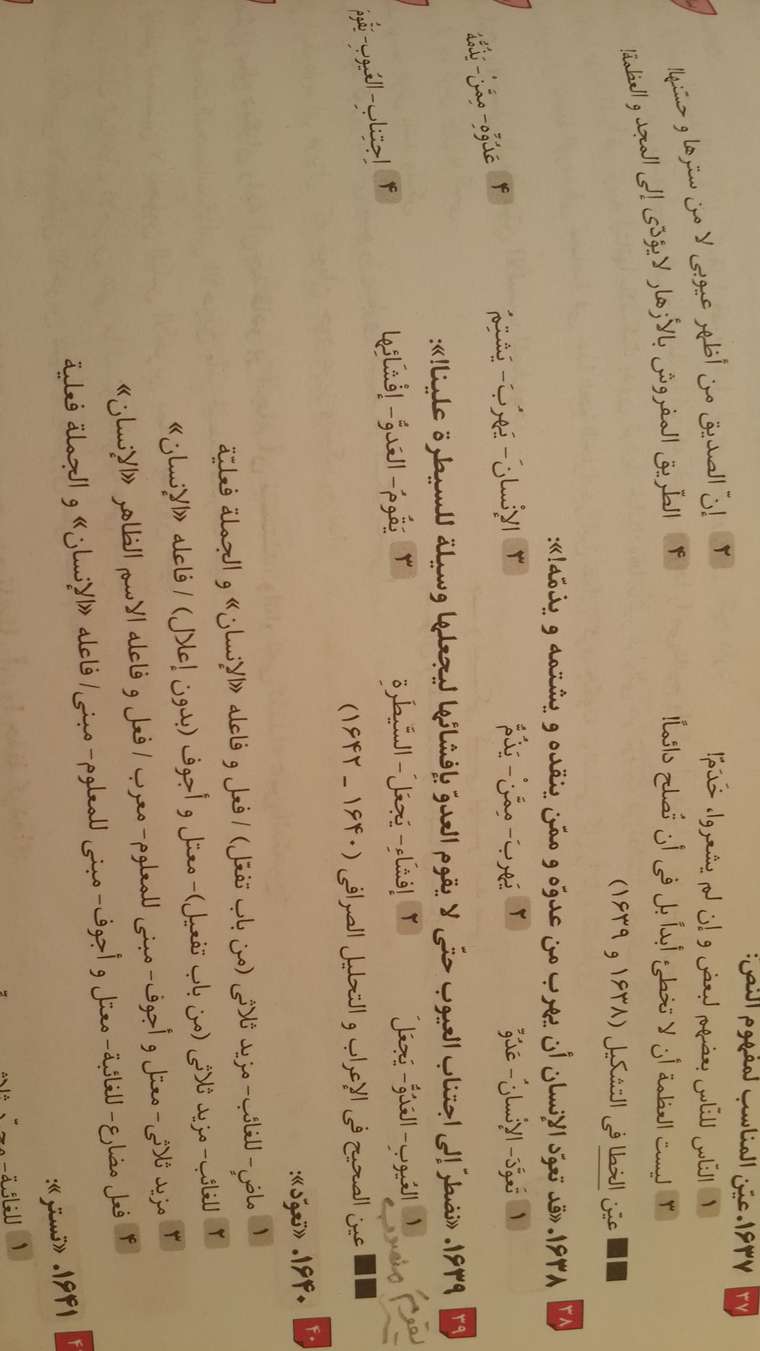 ۳۷ ۱۶۳۷. عیّن المناسب لمفهوم النص:
۱ النّاس للنّاس بعضهم لبعض و إن لم یشعروا، خَدَمٌ! ۲ إنّ الصدیق من أظهر عیوبی لا من سترها و حسّنها!
۳ لیست العظمة أن لا تخطیء أبداً بل فی أن تُصلح دائماً! ۴ الطّریق المفروش بالأزهار لا یؤدّی إلی المجد و العظمة!
عیّن الخطا فی التشکیل (۱۶۳۸ و ۱۶۳۹)
۳۸ ۱۶۳۸. «قد تعوّد الإنسان أن یهرب من عدوّه و ممّن ینقده و یشتمه و یذمّه!»:
۱ تَعَوَّدَ - الإنْسانُ - عَدُوِّ ۲ یَهرِبَ - مِمَّنْ - یَذُمُّ ۳ الإنْسانَ - یَهرُبَ - یَشتِمُ ۴ عَدُوِّهِ - مِمَّنْ - یَذُمُّهُ
۳۹ ۱۶۳۹. «نضطرّ إلی اجتناب العیوب حتّی لا یقوم العدوّ بإفشائها لیجعلها وسیلة للسیطرة علینا!»:
۱ العُیوبِ - العَدُوُّ - یَجعَلَ ۲ إفشَاءِ - یَجعَلَ - السَّیطَرَةِ ۳ یَقُومُ - العَدوُّ - إفْشَائِها ۴ اِجتِنابِ - العُیوبِ - یَقُومُ
یقومَ منصوب
عین الصحیح فی الإعراب و التحلیل الصرافی (۱۶۴۰ ـ ۱۶۴۲)
۴۰ ۱۶۴۰. «تعوّد»:
۱ ماضٍ - للغائب - مزید ثلاثی (من باب تفعّل) / فعل و فاعله «الإنسان» و الجملة فعلیّة
۲ للغائب - مزید ثلاثی (من باب تفعیل) - معتل و أجوف (بدون إعلال) / فاعله «الإنسان»
۳ مزید ثلاثی - معتل و أجوف - مبنی للمعلوم - معرب / فعل و فاعله الاسم الظاهر «الإنسان»
۴ فعل مضارع - للغائبة - معتل و أجوف - مبنی للمعلوم - مبنی / فاعله «الإنسان» و الجملة فعلیة
۱۶۴۱. «تستر»:
۱ للغائبة -